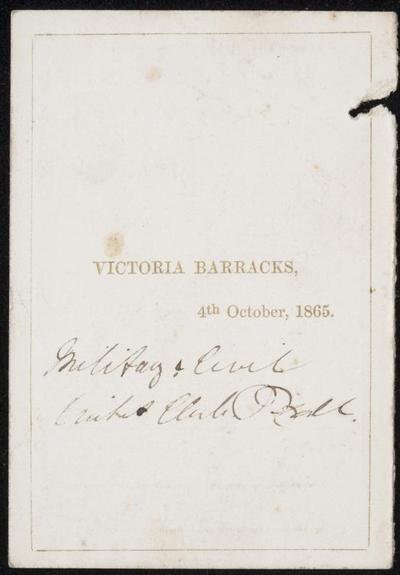 VICTORIA BARRACKS,
4th October, 1865.
Military & Civil
Cricket Club Ball.